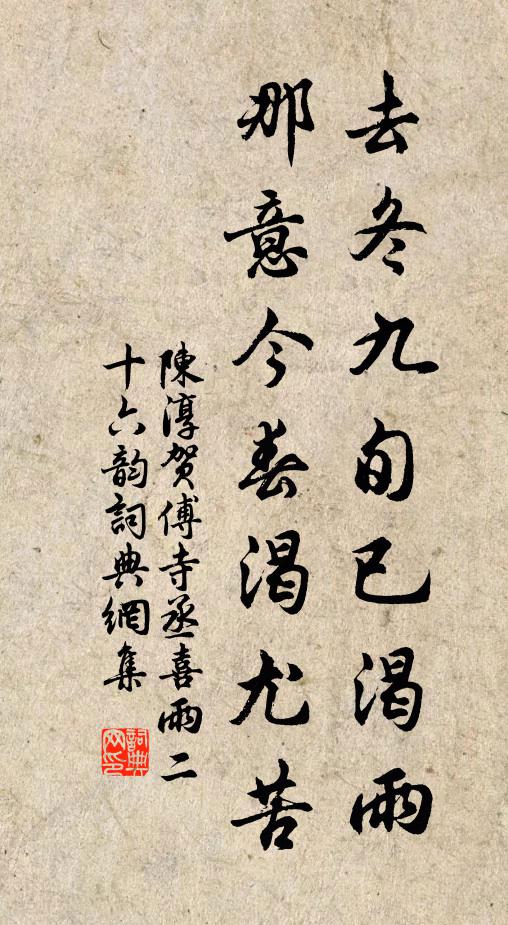 去冬九旬已渴雨
那意今春渴尤苦
陳淳賀傅寺丞喜雨二
十六韵詞典網集
詞典网印